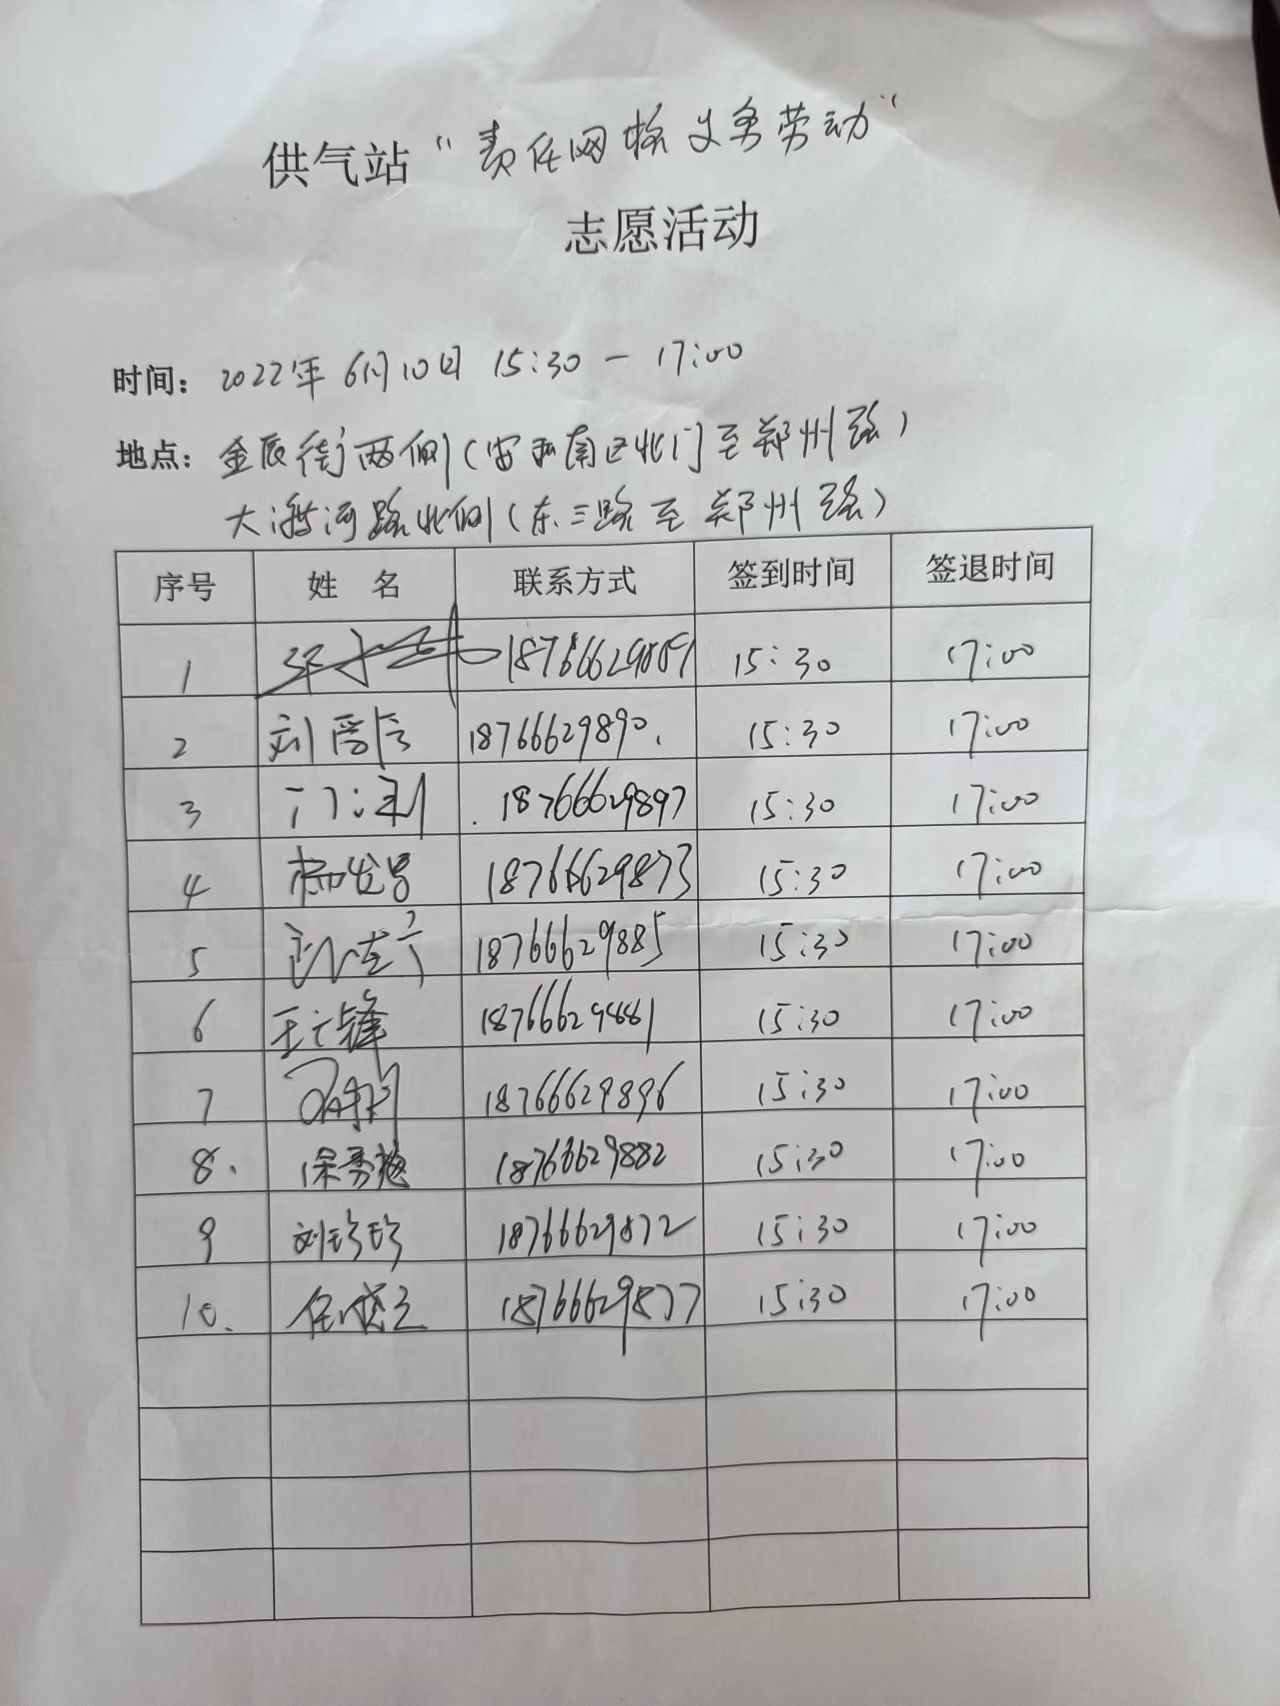 供气站“责任网格义务劳动”
志愿活动
时间：2022年6月10日 15:30 — 17:00
地点：金辰街两侧(安和南区北门至郑州路)
大渡河路北侧(东三路至郑州路)
序号 姓 名 联系方式 签到时间 签退时间
1 18766629889 15:30 17:00
2 18766629890. 15:30 17:00
3 18766629897 15:30 17:00
4 18766629873 15:30 17:00
5 18766629885 15:30 17:00
6 18766629881 15:30 17:00
7 18766629896 15:30 17:00
8. 18766629882 15:30 17:00
9 刘珍珍 18766629872 15:30 17:00
10. 18766629877 15:30 17:00